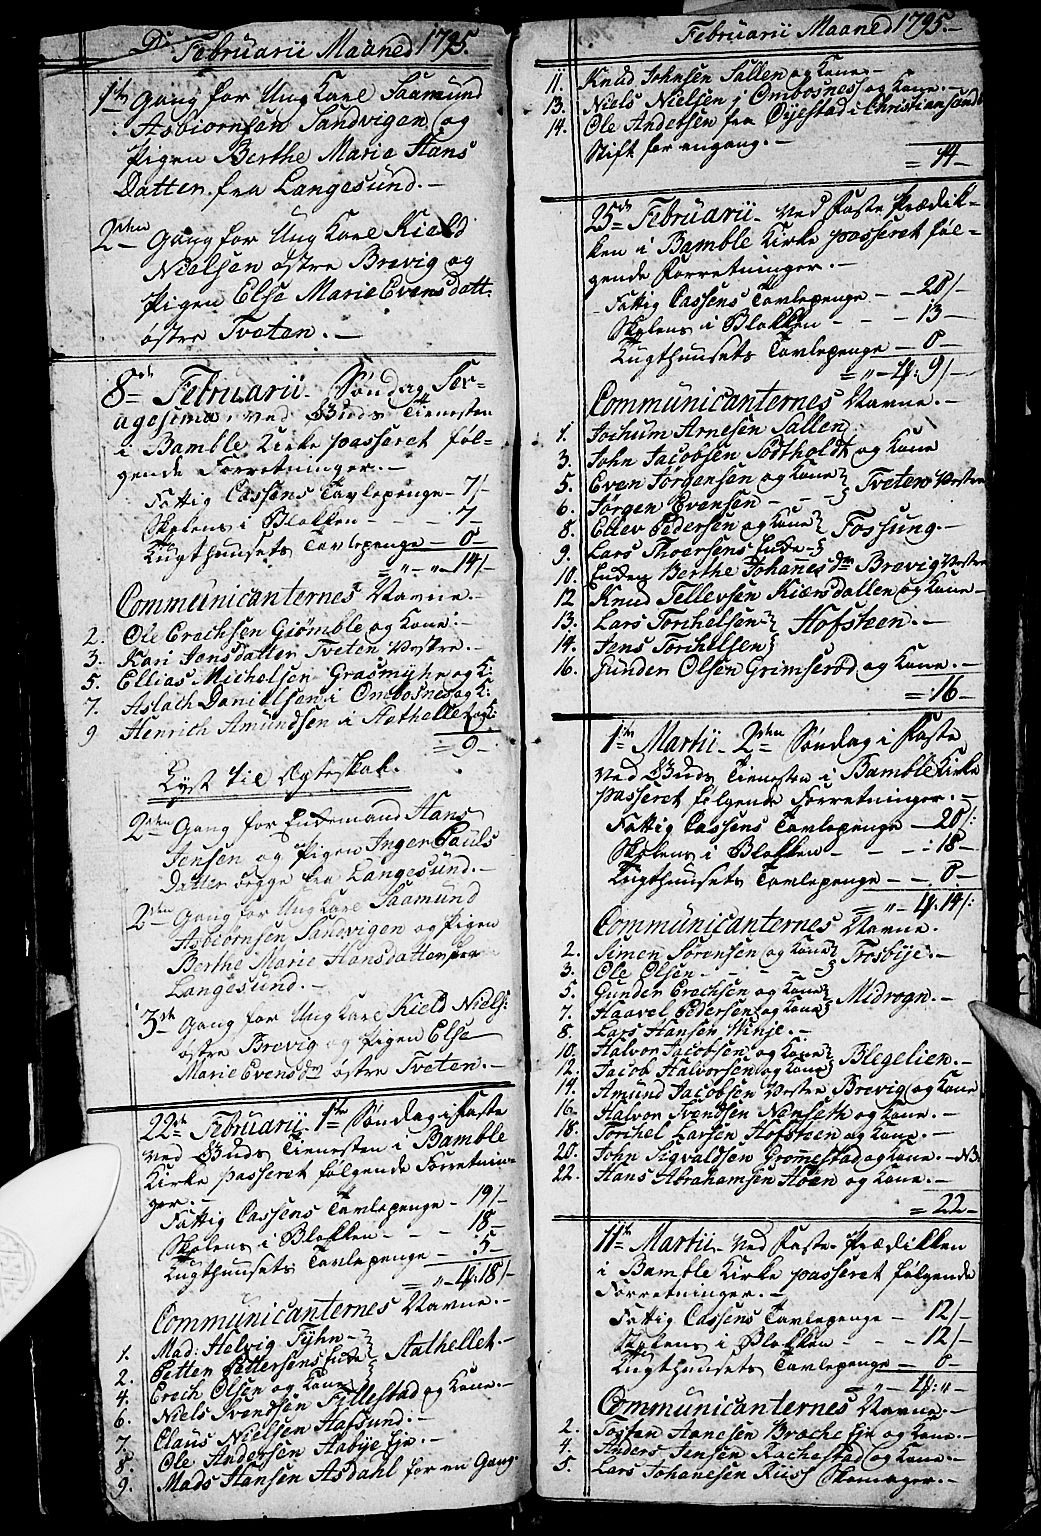 D: Februarii Maaned 1795.
1te Gang for Ung Karl Saamund
Asbiörnsen Sandvigen og
Pigen Berthe Maria Hans
Datter fra Langesund.
2den Gang for Ung Karl Kield
Nielsen østre Brevig og
Pigen Else Marie Evensdatt:
østre Tveten.
8de Februarii Søndag Sex-
agesima, ved Guds Tienesten
i Bamble Kirke passeret føl-
gende Forretninger.
Fattig Cassens Tavlepenge - 7/-
Skolens i Blokken - - - - 7 -
Tugthuusets Tavlepenge - 0 -
= „ - „ - 14/-
Communicanternes Navne.
2. Ole Erachsen Giømble og Kone.
3. Kari Jensdatter Tveten Vestre.
5. Ellias Michelsen Grasmyhr og K:
7. Aslach Danielsen i Ombosnes og K:
9 Henrich Amundsen i Aathellet og K:
= 9 -
Lyst til Ægteskab.
2den Gang for Enkemand Hans
Jensen og Pigen Inger Pauls
Datter begge fra Langesund.
2den Gang for Ung Karl Saamund
Asbiörnsen Sandvigen og Pigen
Berthe Marie Hansdatter fra
Langesund.
3de Gang for Ung Karl Kield Niels:
østre Brevig og Pigen Else
Marie Evensdr østre Tveten.
22de Februarii 1te Søndag i Faste
ved Guds Tienesten i Bamble
Kirke passeret følgende Forretnin-
ger.
Fattig Cassens Tavlepenge - 19/-
Skolens i Blokken - - - 18 -
Tugthuusets Tavlepenge - 5 -
= „ - 4: 18/-
Communicanternes Navne.
1. Mad: Helvig Tyhn
2. Petter Pettersens Enke Aathellet
4. Erich Olsen og Kone
6. Niels Svendsen Fillestad og Kone.
7. Claus Nielsen Hafsund.
8. Ole Andersen Aabye Eje.
9. Mads Hansen Asdahl for en Gang.
Februarii Maaned 1795.
11. Knud Johnsen Sallen og Kone
13. Niels Nielsen i Ombosnes og Kone.
14. Ole Andersen fra Øyestad i Christiansands
Stift for engang.
= 14 -
25de Februarii Ved Faste Prædik-
ken i Bamble Kirke passeret føl-
gende Forretninger.
Fattig Cassens Tavlepenge - 20/-
Skolens i Blokken - - - 13 -
Tugthuusets Tavlepenge - 0 -
= „ - 4: 9/-
Communicanternes Navne.
1. Jochum Arnesen Sallen
3. John Jacobsen Sødtholdt og Kone
5. Even Jørgensen og Kone Tveten Vestre
6. Jørgen Evensen
8. Ellev Pedersen og Kone Fossung.
9. Lars Thoersens Enke
10. Enken Berthe Johannesdr Brevig Vestre
12 Knud Tellevsen Kiærsdallen og Kone
13. Lars Torchelsen Hofsteen.
14. Jens Torchelsen
16. Gunder Olsen Grimserød og Kone.
= 16 -
1te Martii 2den Søndag i Faste
ved Guds Tienesten i Bamble Kirke
passeret følgende Forretninger.
Fattig Cassens Tavlepenge - 20/:
Skolens i Blokken - - - 18 -
Tugthuusets Tavlepenge - 0 -
= „ - 4: 14/:
Communicanternes Navne.
2. Simen Sørensen og Kone Trosbye.
3. Ole Olsen
5. Gunder Erachsen og Kone
7. Haavel Pedersen og Kone Midrogn.
8. Lars Hansen Vinje.
10. Halvor Jacobsen og Kone Blegelien.
12. Jacob Halvorsen og Kone
14. Amund Jacobsen Vestre Brevig og Kone
16. Halvor Svendsen Nenseth og Kone.
18. Torchel Larsen Hofsteen og Kone.
20. John Sigvaldsen Grommestad og Kone. NB
22. Hans Abrahamsen Høen og Kone.
= 22 -
11te Martii Ved Faste-Prædikken
i Bamble Kirke passeret følgende
Forretninger.
Fattig Cassens Tavlepenge - 12/-
Skolens i Blokken - - - 12/-
Tugthuusets Tavlepenge - 0 -
= „ - 4: „ -
Communicanternes Navne.
2. Tosten Hansen Brache Eje og Kone.
4. Anders Jensen Rachestad og Kone.
5. Lars Johanesen Riis Skomager.